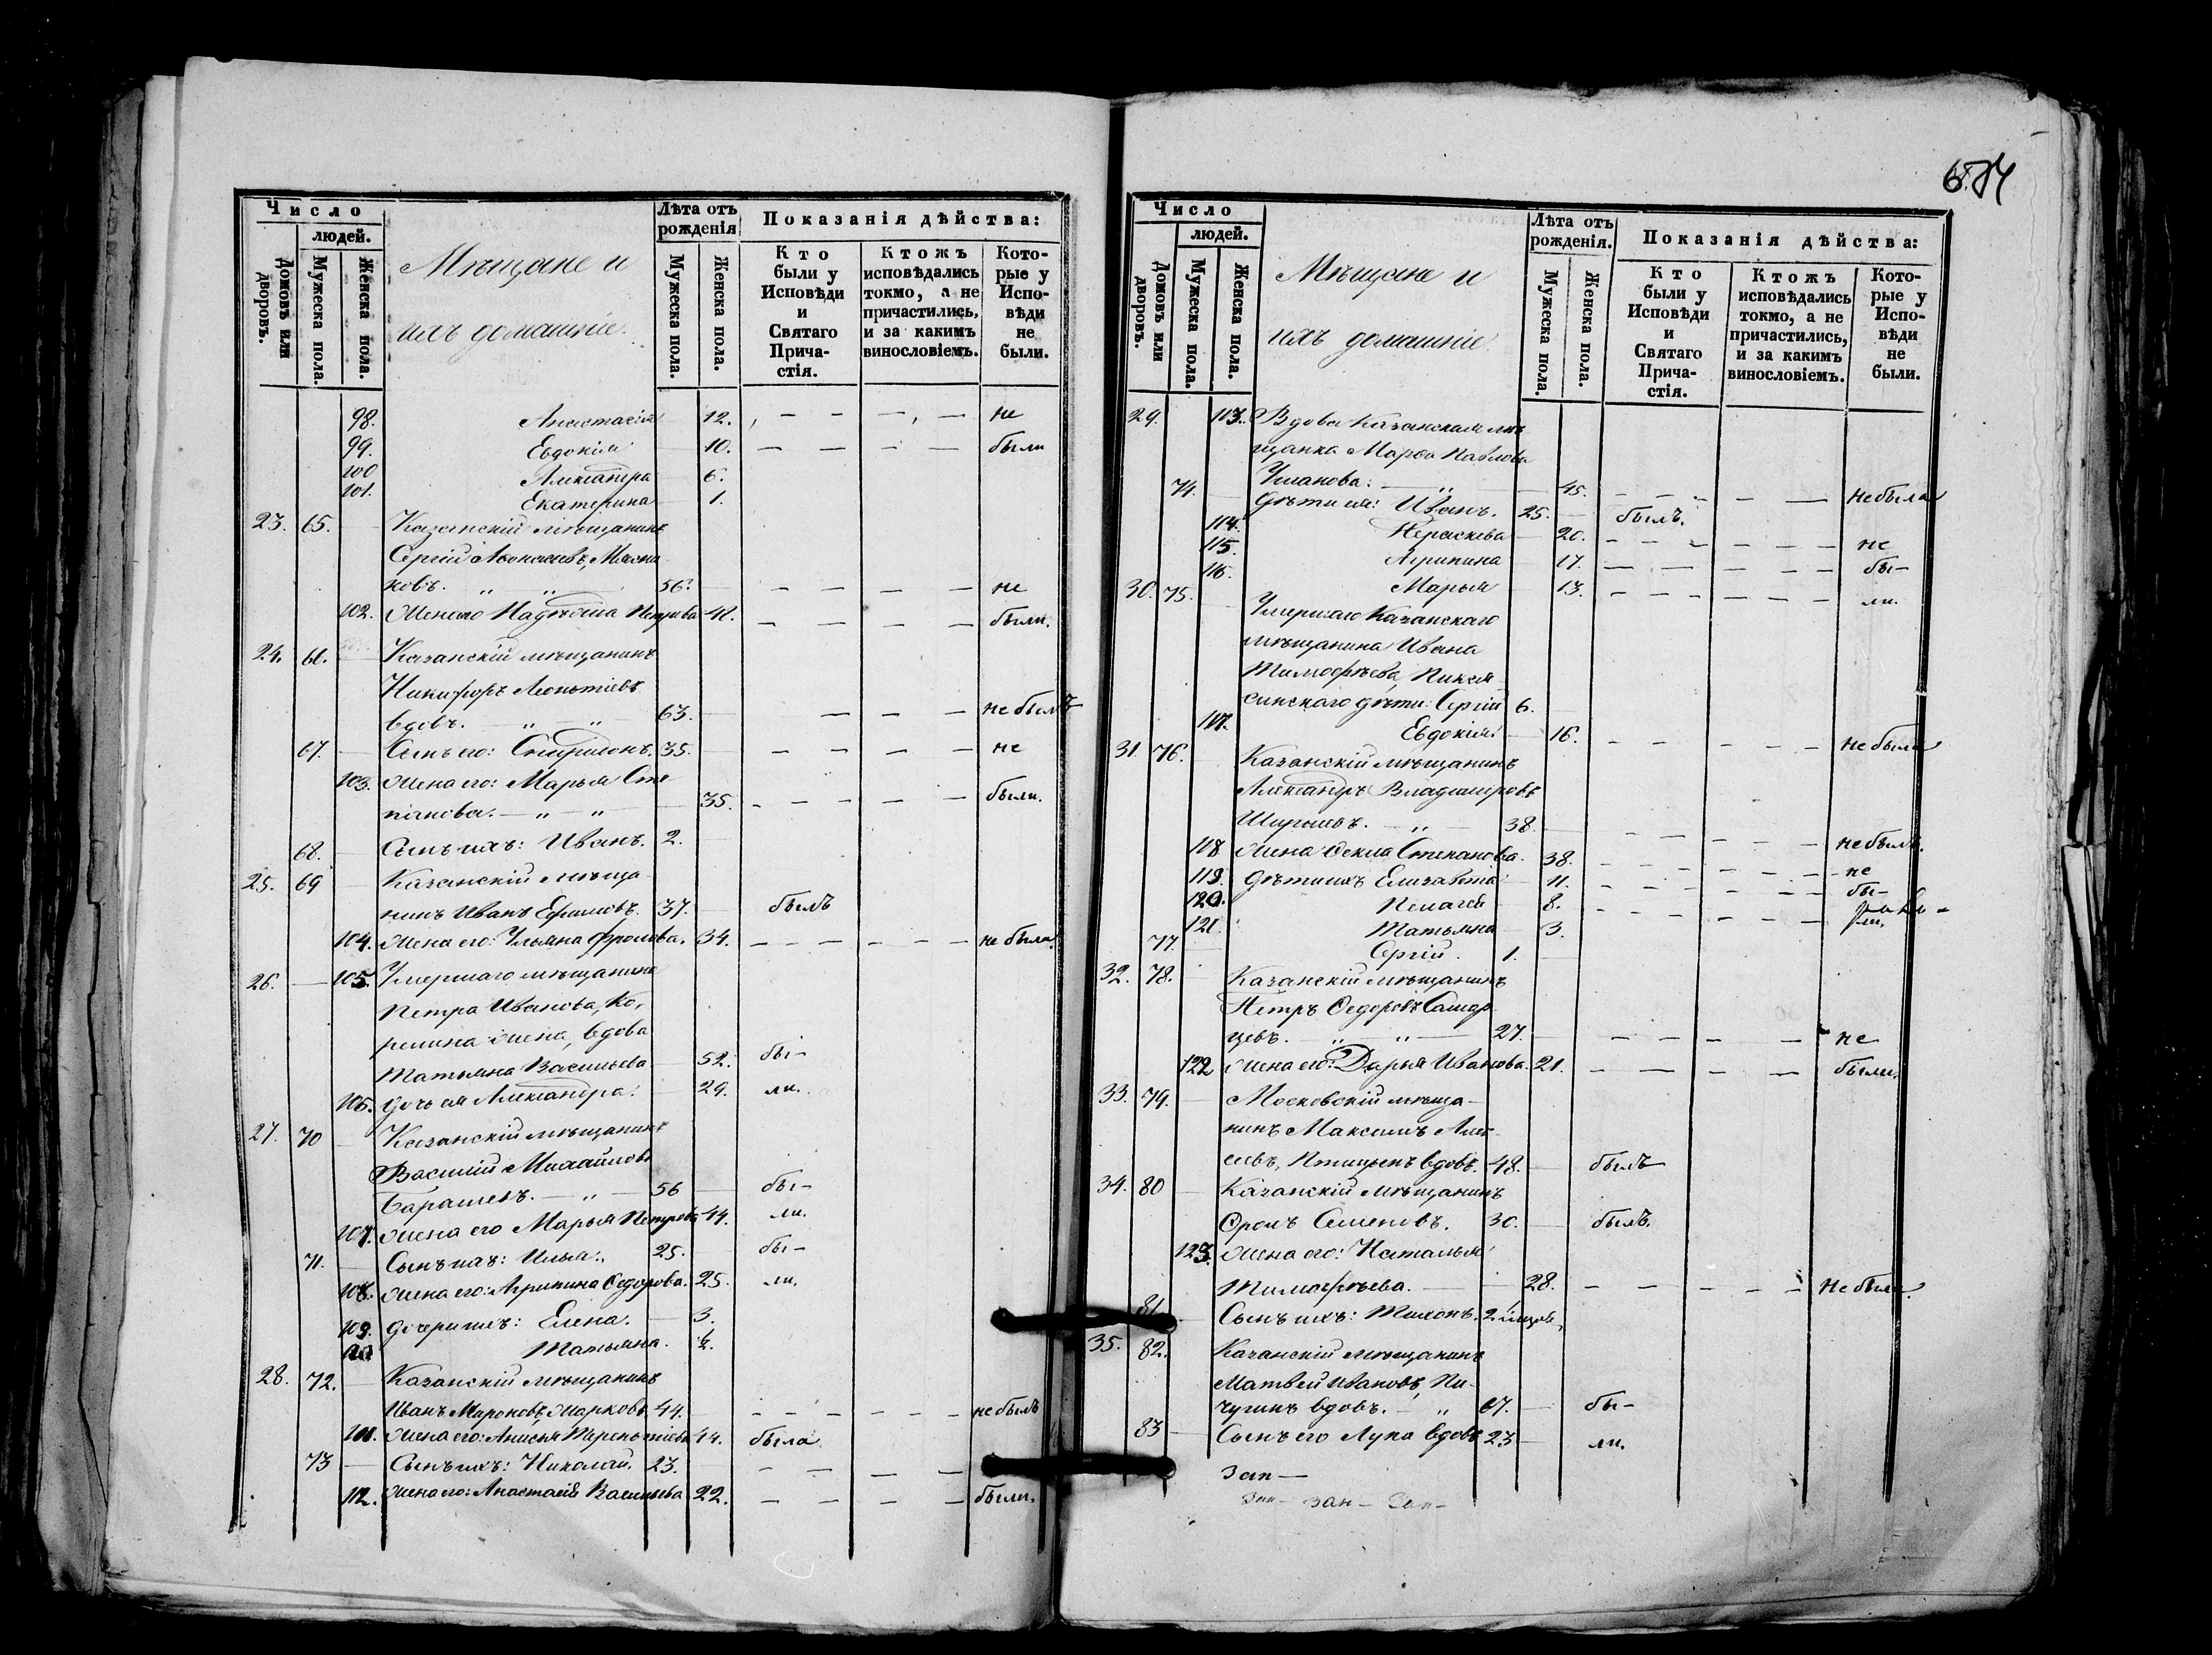 684
Число
людей.
Домовъ или дворовъ.
Мужеска пола.
Женска пола.
Мѣщане и
ихъ домашніе.
Лѣта отъ рожденія
Мужеска пола.
Женска пола.
Показанія дѣйства:
Кто были у Исповѣди и Святаго Прича- стія.
Ктожъ исповѣдались токмо, а не причастились, и за какимъ винословіемъ.
Кото- рые у Испо- вѣди не были.
98. Анастасія 12. — — — — не
99. Евдокія 10. — — — — были
100 Александра 6.
101. Екатерина 1.
23. 65. — Казанскій мѣщанинъ
Сергій Аѳонасьевъ,
ковъ. „ „ 56. — — — — не
102. Жена его Надежда Петрова 48. — — — — были.
24. 66. — Казанскій мѣщанинъ
Никифоръ Леонтіевъ
вдовъ. — „ — „ 63. — — — не былъ
67. — Сынъ его: Спиридонъ. 35. — — — — не
103. Жена его: Марья Сте
панова. — „ — „ — 35. — — — — — были.
68. — Сынъ ихъ: Иванъ. 2.
25. 69 — Казанскій мѣща-
нинъ Иванъ Ефимовъ. 37. — былъ
104. Жена его: Ульяна Фролова. 34. — — — — — — не была.
26. — 105. Умершаго мѣщанина
Петра Иванова, Ко-
релина жена, вдова
Татьяна Васильева — 52. бы-
106. дочь ея Александра. — 29. ли.
27. 70 — Казанскій мѣщанинъ
Василій Михайловъ
Барашевъ. — „ — 56 — бы-
107. Жена его Марья Петрова 44. ли.
71. — Сынъ ихъ: Илья. 25. — бы-
108. Жена его: Агрипина Ѳедорова. 25. ли.
109. дочери ихъ: Елена. — 3.
110 Татьяна. ½.
28. 72. — Казанскій мѣщанинъ
Иванъ Мироновъ, Марковъ 44. — — — — — — не былъ
111. Жена его: Анисья Терентьева 44. была.
73 — Сынъ ихъ: Николай. 23. — — — — —
112. Жена его: Анастасія Васильева 22. — — — — были.
Число
людей.
Домовъ или дворовъ.
Мужеска пола.
Женска пола.
Мѣщане и
ихъ домашніе
Лѣта отъ рожденія.
Мужеска пола.
Женска пола.
Показанія дѣйства:
Кто были у Исповѣди и Святаго Прича- стія.
Ктожъ исповѣдались токмо, а не причастились, и за какимъ винословіемъ.
Кото- рые у Испо- вѣди не были.
29. 113. Вдова Казанская мѣ
щанка Марѳа Павлова
Усманова. — „ — 45. — — — — — не была
74. — дѣти ея: Иванъ. 25. — былъ.
114. Параскева — 20. — — — — — — не
115. Агрипина 17. — — — — — — бы-
116. Марья — 13. — — — — — — ли.
30. 75. — Умершаго Казанскаго
мѣщанина Ивана
Тимоѳѣева,
дѣти: Сергій 6. —
117. Евдокія. — 16. — — — — — не была
31. 76. — Казанскій мѣщанинъ
Александръ Владиміровъ
Ширяевъ. — „ — 38. — — — — — — не былъ.
118 Жена Ѳекла Степанова. 38. — — — — — — не
119. дѣти ихъ Елизавета 11. — — — — — — бы-
120. Пелагея 8. — — — — — — ли.
121. Татьяна 3.
77. — Сергій. 1. —
32. 78. — Казанскій мѣщанинъ
Петръ Ѳедоровъ Самар
цевъ. — „ — „ — 27. — — — — — не
122 Жена его: Дарья Иванова. 21. — — — — — были.
33. 79. — Московскій мѣща-
нинъ Максимъ Алек-
сѣевъ, Птицынъ вдовъ. 48. — былъ
34. 80 — Казанскій мѣщанинъ
Фролъ Семеновъ. 30. — былъ.
123. Жена его: Наталья
Тимоѳѣева. — 28. — — — — — Не была.
81. — Сынъ ихъ: Тихонъ. 2
35. 82. — Казанскій мѣщанинъ
Матвей Ивановъ, Пи-
чугинъ вдовъ. — „ 67. — бы-
83 — Сынъ его Лука вдовъ 23 — ли.